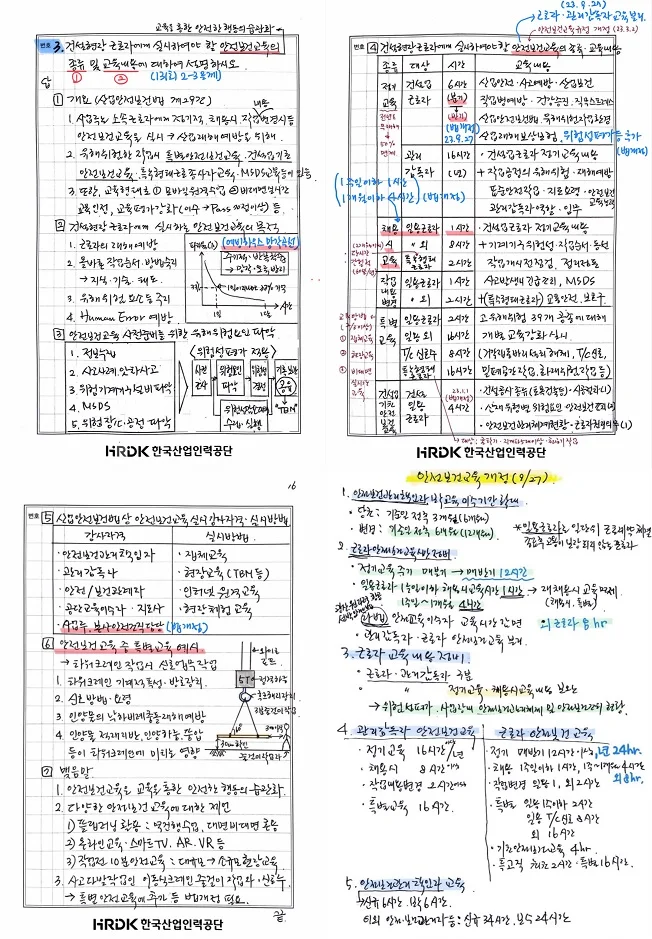 교육을 통한 안전한 행동의 습관화
번호 3. 건설현장 근로자에게 실시하여야 할 안전보건교육의
종류 및 교육내용에 대하여 설명하시오.
① ② (131회 2-3 문제)
답
1 개요 (산업안전보건법 제29조)
1. 사업주는 소속근로자에게 정기적, 채용시, 작업변경시 등
안전보건교육을 실시 → 산업재해예방을 위해.
2. 유해위험한 작업시 특별안전보건교육, 건설업기초
안전보건교육, 특수형태근로종사자교육, MSDS교육 등이 있음
3. 또한, 교육형태로 ① 모바일원격교육 ② 비대면실시간
교육인정, 교육평가강화 (이수 → Pass 80점이상) 등.
2 건설현장 근로자에게 실시하는 안전보건교육의 목적
1. 근로자의 재해예방
2. 올바른 작업순서·방법숙지
→ 지식·기능·태도
3. 유해위험 요인등 숙지
4. Human Error 예방
(에빙하우스 망각곡선)
주기적·반복학습
→ 망각·모호방지
시간
1일
3 안전보건교육 사전준비를 위한 유해위험요인 파악
1. 정보수집
2. 사고사례, 아차사고
3. 위험기계기구설비 파악
4. MSDS
5. 위험장소·공정 파악
<위험성평가 적용>
사전조사
위험요인 파악
위험성 결정
기록보존
공유
"TBM"
수립·실행
HRDK 한국산업인력공단
(23. 9. 27)
근로자·관리감독자 교육 분리
안전보건교육규정 개정 (23.3.2)
번호 4 건설현장 근로자에게 실시하여야할 안전보건교육의 종류·교육내용
종류 대상 시간 교육내용
정기교육 건설업 근로자 6시간 (분기) 산업안전·사고예방·산업보건
직업병예방·건강증진·직무스트레스
(법개정) 23.9.27
산업안전보건법, 유해위험작업환경
산업재해보상보험, 위험성평가 등 추가 (법개정)
관리감독자 16시간 (년) · 건설업근로자 정기교육내용
+ 작업공정의 유해위험·재해예방
표준안전작업·지도요령·안전보건교육능력
관리감독자역할·임무
1주일이하 1시간
1개월이하 4시간 (법개정)
채용시교육 일용근로자 1시간 · 건설업근로자 정기교육내용
〃 외 8시간 + 기계기구위험성·작업순서·동선
특수형태근로자 2시간 작업개시전점검, 정리정돈
작업내용변경 일용근로자 1시간 사고발생시긴급조치, MSDS
〃 외 2시간 +(특수형태근로자) 교통안전, 보호구
특별교육 일용근로자 2시간 · 고유해위험 39개 공종에 대해
일용 외 16시간 개별교육강화실시
T/C 신호수 8시간
특수형태근로자 16시간 밀폐공간작업, 화재위험작업 등)
① 집체교육
② 현장교육
③ 비대면실시간교육
건설업기초안전보건교육 건설일용근로자 4시간 · 건설공사 종류(토목건축등)·시공절차(1)
· 산재 위험별 위험요인 안전보건조치(2)
· 안전보건관리체계현황·근로자권리의무(1)
HRDK 한국산업인력공단
16
번호 5 산업안전보건법상 안전보건교육 실시강사자격·실시방법
강사자격 실시방법
· 안전보건관리책임자 · 집체교육
· 관리감독자 · 현장교육 (TBM등)
· 안전/보건관리자 · 인터넷 원격교육
· 공단교육이수자·지도사 · 현장체험교육
· 사업주, 본사안전조직담당 (법개정)
6 안전보건교육 중 특별교육 예시
→ 타워크레인 작업시 신호업무작업
1. 타워크레인 기계적특성·방호장치
2. 신호방법·요령
3. 인양물의 낙하비래충돌재해예방
4. 인양물 적재지반, 인양하중, 풍압
등이 타워크레인에 미치는 영향
와이어로프
5T
훅해지장치
30cm
60°
7 맺음말
1. 안전보건교육은 교육을 통한 안전한 행동의 습관화
2. 다양한 안전보건교육에 대한 제언
1) 플립러닝 활용 : 역진행수업, 대면비대면 혼용
2) 온라인교육·스마트TV, AR, VR 등
3) 작업전 10분안전교육 : 대규모 → 소규모현장교육
3. 사고다발작업인 이동식크레인 줄걸이작업자·신호수
→ 특별안전교육에 추가 등 법개정 필요. 끝
HRDK 한국산업인력공단
안전보건교육 개정 (9/27)
1. 안전보건관리책임자 등 교육 이수기간 확대
· 당초 : 기준일 전후 3개월 (6개월)
· 변경 : 기준일 전후 6개월 (12개월)
2. 근로자 안전보건교육시간 정비
· 정기교육 주기 매분기 → 매반기 12시간
· 일용근로자 1주일이하 채용시 교육시간 1시간 → 재채용시 교육면제
1주일~1개월 4시간 (채용시, 특별)
그외 근로자 8hr
· 관리감독자·근로자 안전보건교육 분리
3. 근로자 교육내용 정비
· 근로자·관리감독자 구분
· 〃 정기교육·채용시교육내용 보완
→ 위험성평가·사업장내 안전보건관리체제 및 안전보건조치 현황
4. 관리감독자 안전보건교육 근로자 안전보건교육
· 정기교육 16시간이상/년 정기 매반기 12시간이상, 년 24hr.
· 채용시 8시간이상 · 채용 1주이하 1시간, 1주~1개월 4시간 외 8hr.
· 작업내용변경 2시간이상 · 작업변경 일용 1, 외 2시간
· 특별교육 16시간 · 특별 일용 1주이하 2시간
일용 T/C 신호 8시간
외 16시간
· 기초안전보건교육 4hr
· 특고직 최초 2시간·특별 16시간
5. 안전보건관리책임자 교육
→ 신규 6시간, 보수 6시간
이외 안전·보건관리자 등 : 신규 34시간, 보수 24시간